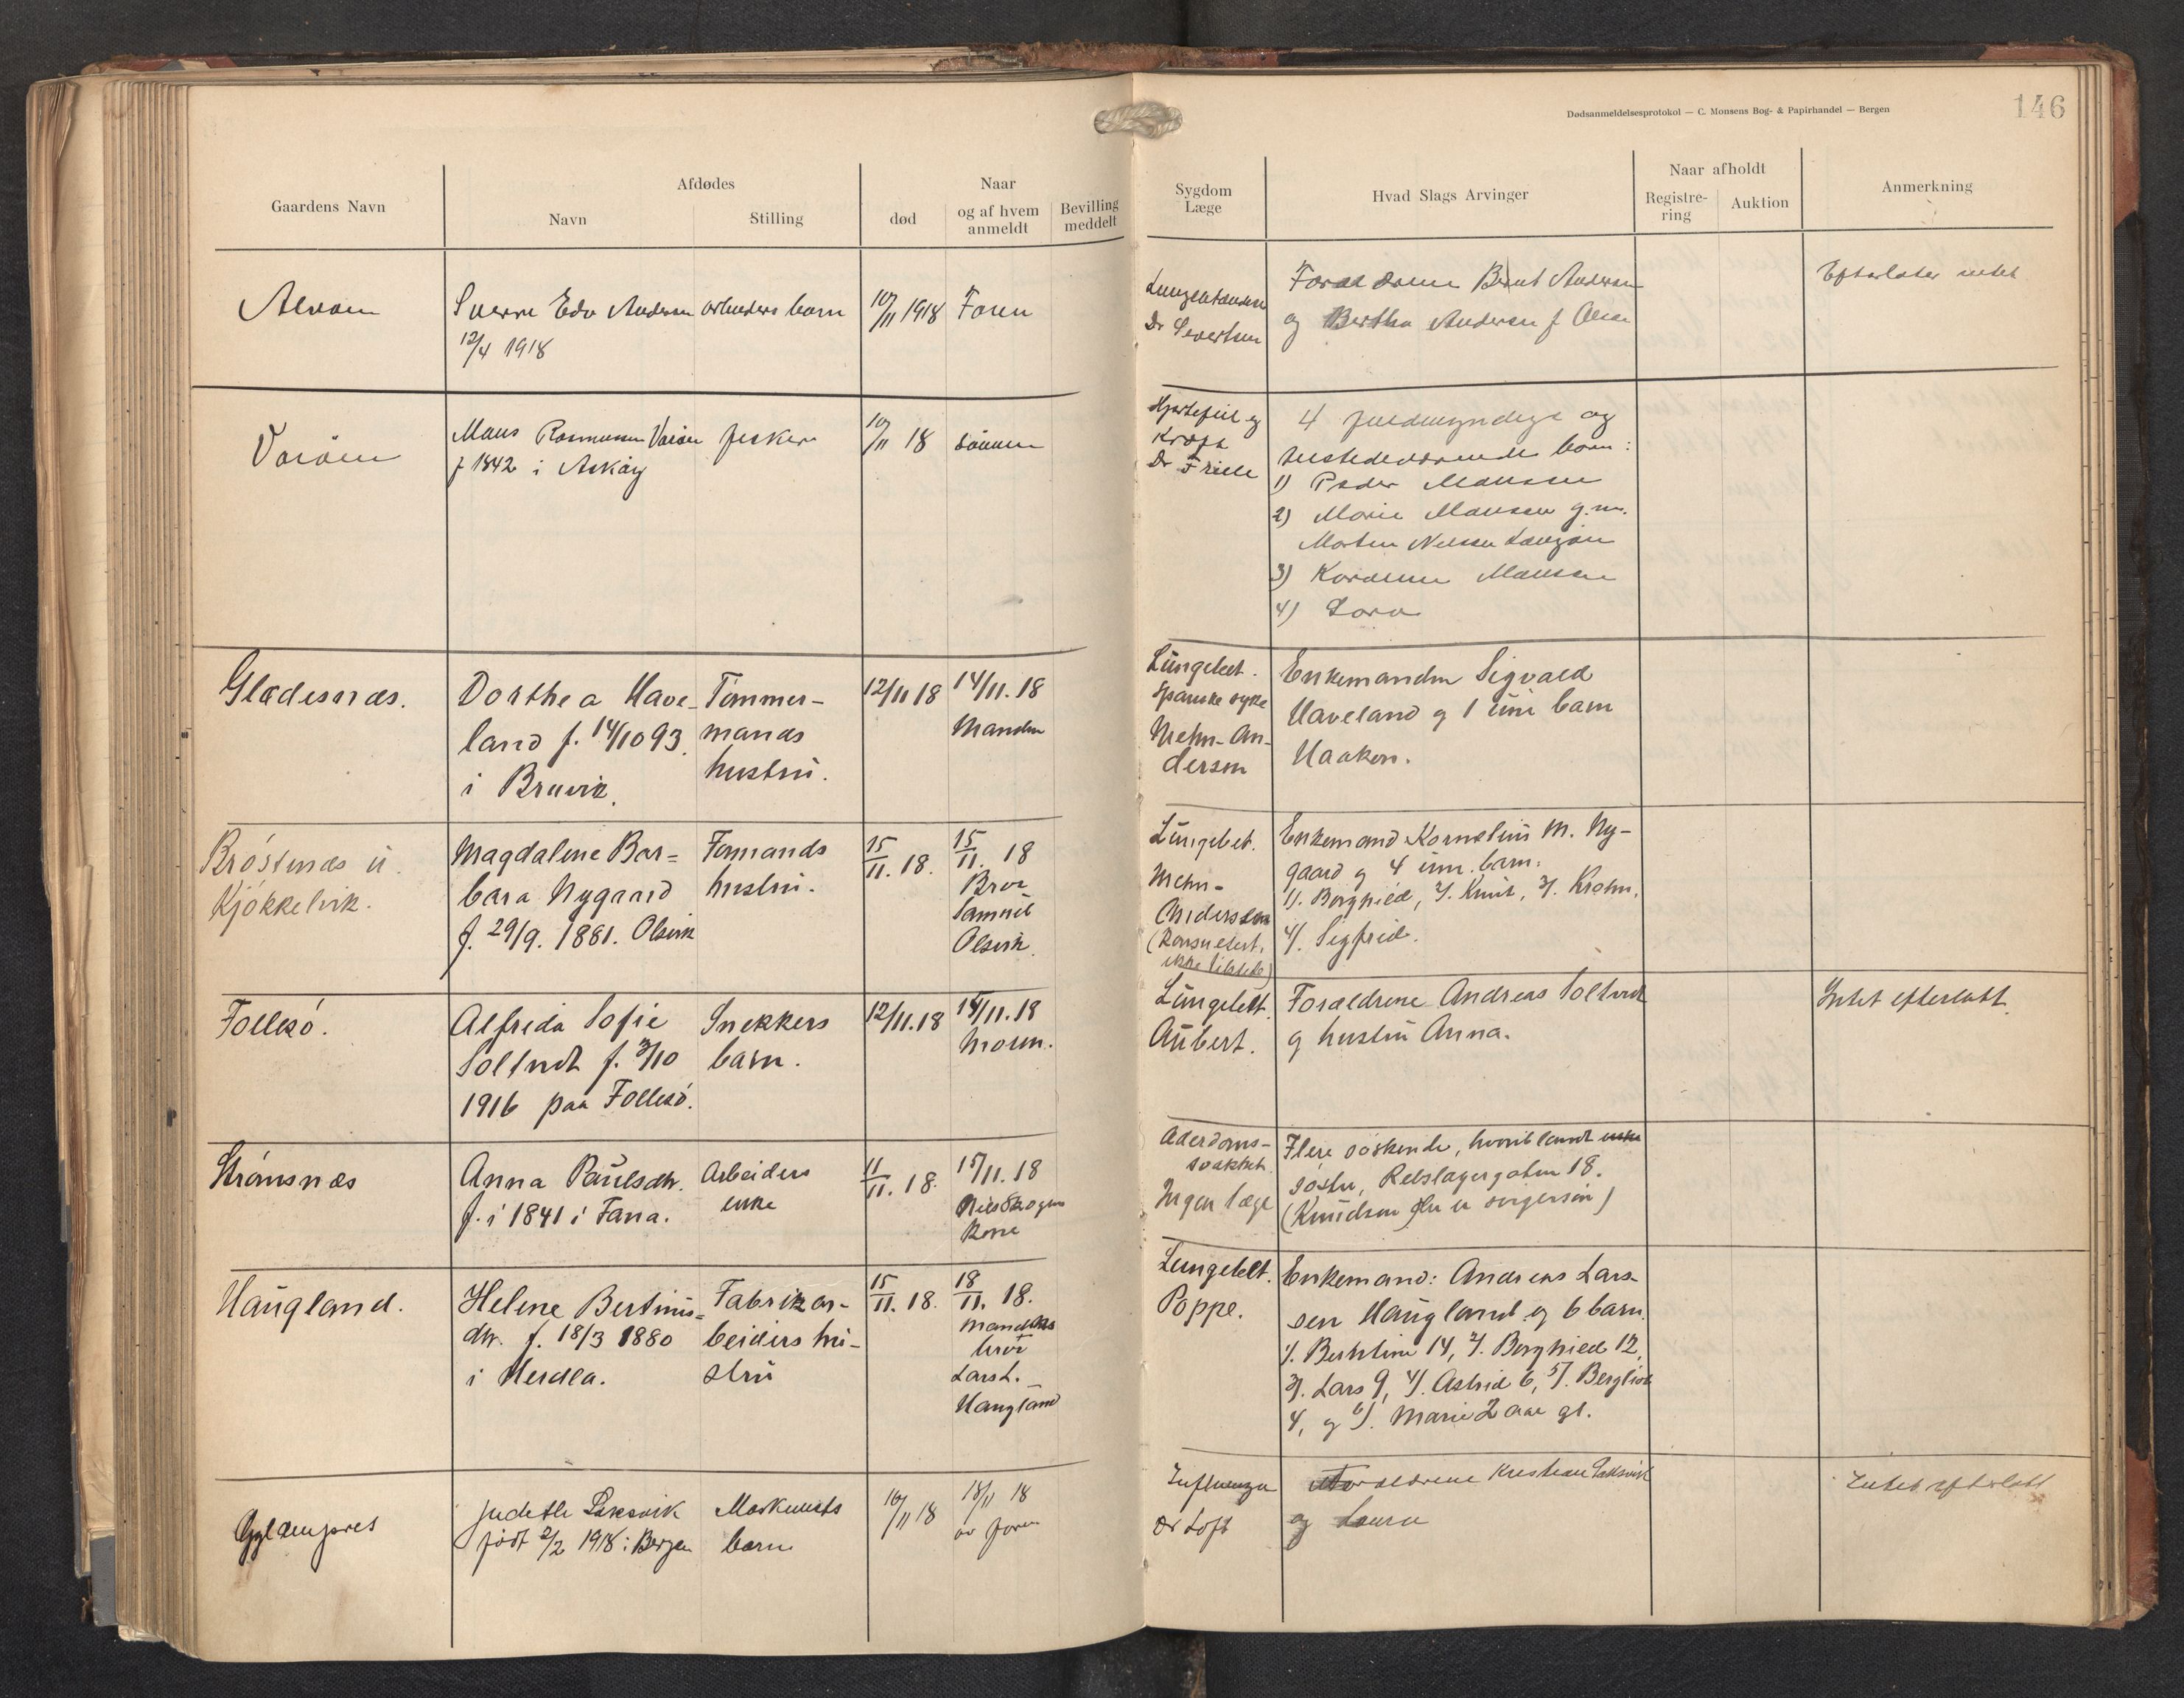 Dødsanmeldelsesprotokol — C. Monsens Bog- & Papirhandel — Bergen
146
Gaardens Navn
Afdødes
Navn
Stilling
død
Naar
og af hvem
anmeldt
Bevilling
meddelt
Sygdom
Læge
Hvad Slags Arvinger
Naar afholdt
Registre-
ring
Auktion
Anmerkning
Alvøen
Sverre Edv Andersen
12/4 1918
arbeiders barn
10/11 1918
Faren
Dr Sivertsen
Forældrene Bernt Andersen
og Bertha Andersen f Olsen
Efterlater intet
Mons Rasmussen
f 1842 i Askøy
fisker
10/11 18
sønnen
Hjertefeil og
Kræft
Dr Friele
4 fuldmyndige og
tilstedeværende barn:
1) Peder Monsen
2) Marie Monsen g.m.
Morten Nilsen
3) Monsen
4) Lava
Gladesnæs.
Dorthea Have-
land f. 14/10 93.
i Bruvik.
Tømmer-
mands
hustru.
12/11 18
14/11. 18
Manden
Lungebet.
spanske syke
Mehn-An-
dersen
Enkemanden Sigvald
Haveland og 1 um barn
Haakon.
Brøstnæs u.
Kjøkkelvik.
Magdalene Bar=
bara Nygaard
f. 29/9. 1881. Olsvik
Formands
hustru.
15/11. 18.
15/11. 18
Bror
Samuel
Olsvik.
Lungebet.
Mehn-
Andersson
(konsultert,
ikke tilstede)
Enkemand Kornelius M. Ny-
gaard og 4 um. barn.
1/. Borghild, 2/. Knut, 3/. Krohn,
4/. Sigfrid.
Follesø.
Alfrida Sofie
Soltvedt f. 3/10
1916 paa Follesø.
Snekkers
barn.
12/11.18
14/11.18
Moren.
Lungebet.
Aubert.
Forældrene Andreas Soltvedt
og hustru Anna.
Intet efterlatt.
Strømsnæs
Anna Paulsdtr.
f. i 1841 i Fana.
Arbeiders
enke
11/11. 18.
15/11. 18
Nils Skogens
kone
Alderdoms-
svakhet.
Ingen læge
Flere søskende, hvoriblandt
søster, Rebslagergaten 18.
(Knudsen
Haugland.
Helene Bertinus=
dtr. f. 18/3 1880
i Herdla.
Fabrikar-
beiders hu-
stru
15/11. 18.
18/11. 18.
Mandens
bror
Lars L.
Haugland
Lungebet.
Poppe.
Enkemand: Andreas Lars-
sen Haugland og 6 barn.
1/. Berthine 14, 2/. Borghild 12,
3/. Lars 9, 4/. Astrid 6, 5/. Bergliot
4, og 6/. Marie 2 aar gl.
Gyldenpris
Judethe Laksvik
født 2/2 1918 i Bergen
Maskinists
barn
16/11 18
18/11 18
av faren
Influenza
Dr Loft
Forældrene Kristian Laksvik
og Laura
Intet efterlatt